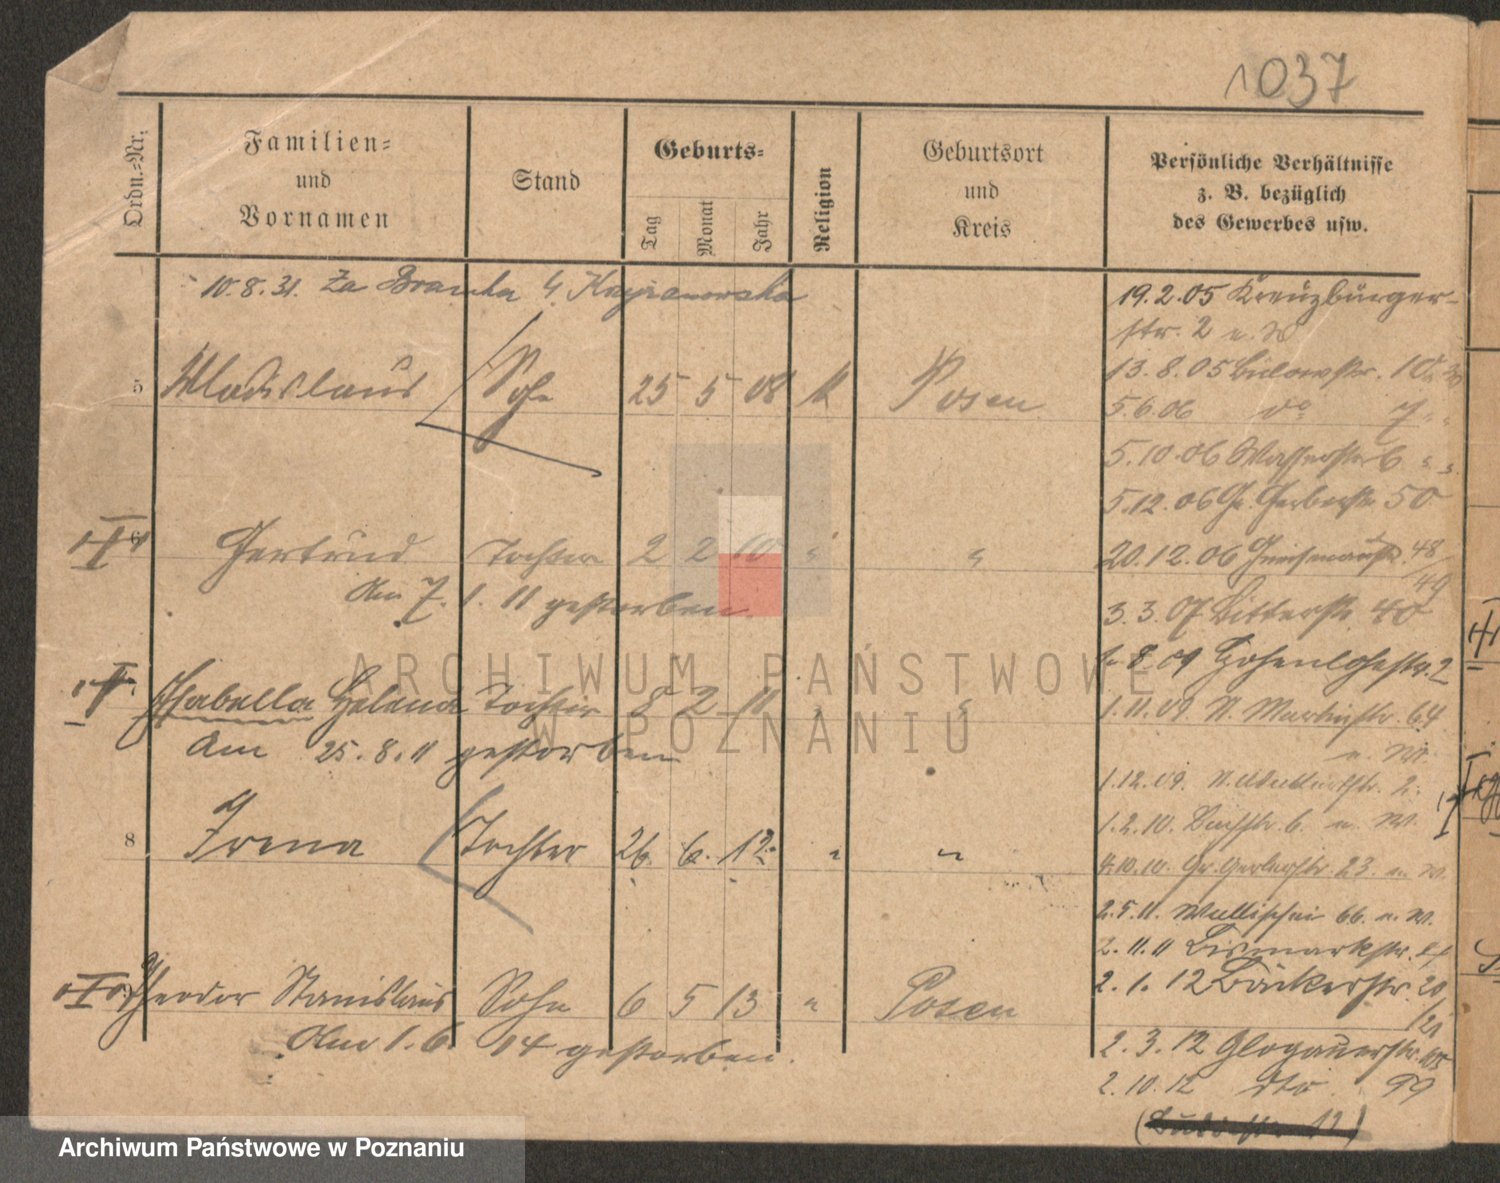 1037
Ordn.-Nr.
Familien-
und
Vornamen
Stand
Geburts-
Tag
Monat
Jahr
Religion
Geburtsort
und
Kreis
Persönliche Verhältnisse
z. B. bezüglich
des Gewerbes usw.
10.8.31. Za Bramka 4
19.2.05 Kreuzburger-
str. 2 u. W
5 Wladislaus Sohn 25 5 08 k Posen
13.8.05 Bülowstr. 10
5.6.06 do 7 " "
5.10.06 Wasserstr 6 " "
5.12.06 Gr. Gerberstr 50
6 Gertrud Tochter 2 2 10 " "
20.12.06 Gneisenaustr. 48/
49
Am 7. 1. 11 gestorben.
3.3.07 Ritterstr. 40
1.8.09 Hohenlohestr. 2
Isabella Helena Tochter 8 2 11 " "
1.11.09 St. Martinstr. 64
u. W.
Am 25.8.11 gestorben
1.12.09. 2.
1.2.10. 6. u. W.
8 Irena Tochter 26. 6. 12. " "
4.10.10. Gr. Gerberstr. 23. u. W.
2.5.11. Wallischei 66. u. W.
2.11.11 Bismarkstr.
Theodor Stanislaus Sohn 6 5 13 " Posen
2.1.12 Bäckerstr. 20
/21
Am 1. 6. 14 gestorben.
2.3.12 Glogauerstr.
2.10.12 dto. 99
ARCHIWUM PAŃSTWOWE
W POZNANIU
Archiwum Państwowe w Poznaniu